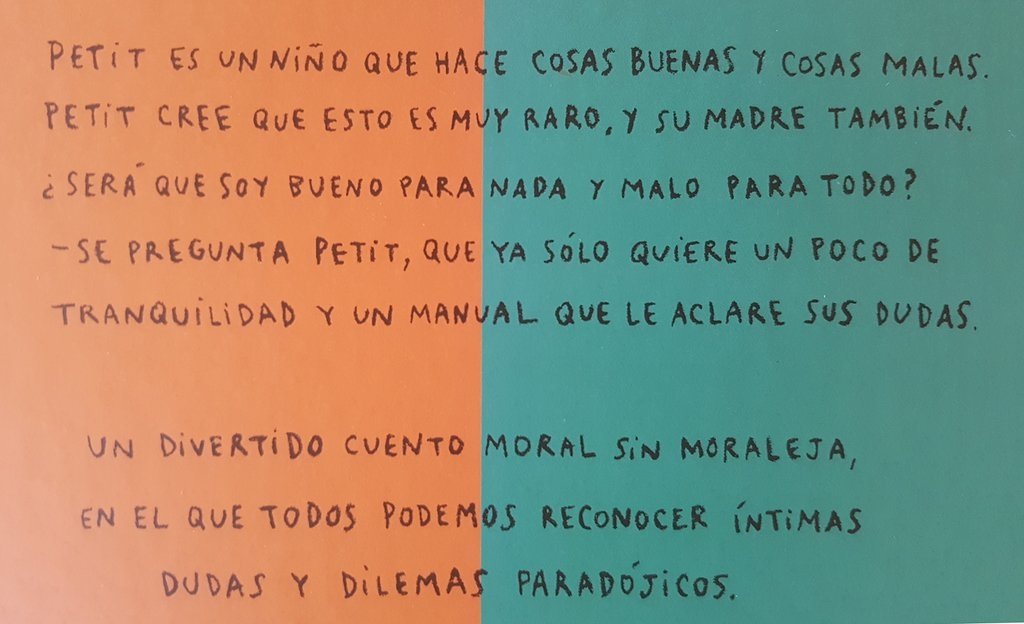 PETIT ES UN NIÑO QUE HACE COSAS BUENAS Y COSAS MALAS.
PETIT CREE QUE ESTO ES MUY RARO, Y SU MADRE TAMBIÉN.
¿SERÁ QUE SOY BUENO PARA NADA Y MALO PARA TODO?
–SE PREGUNTA PETIT, QUE YA SÓLO QUIERE UN POCO DE
TRANQUILIDAD Y UN MANUAL QUE LE ACLARE SUS DUDAS.
UN DIVERTIDO CUENTO MORAL SIN MORALEJA,
EN EL QUE TODOS PODEMOS RECONOCER ÍNTIMAS
DUDAS Y DILEMAS PARADÓJICOS.